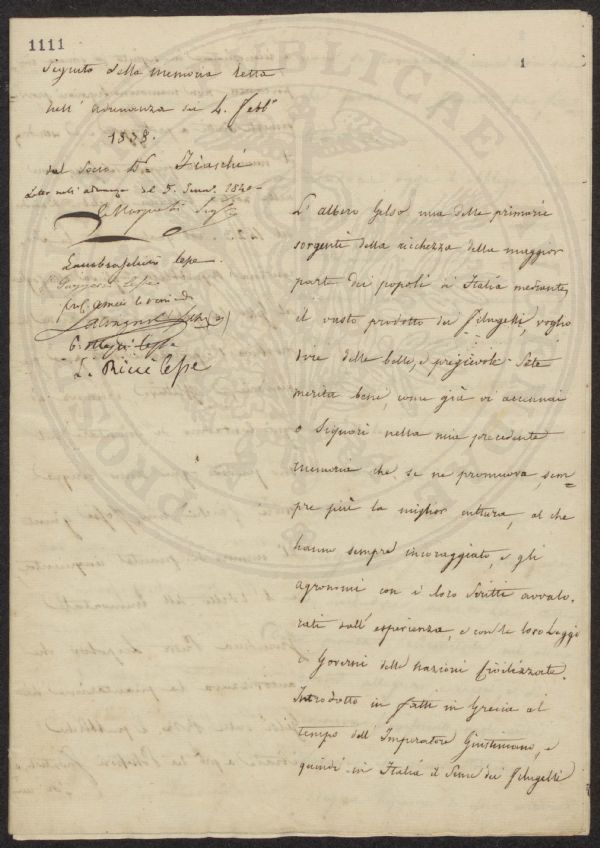 1111
1
Seguito della memoria letta
nell' adunanza dei 4. Febb.º
1838.
dal Socio D.r Fiaschi
Letto nell' adunanza del 5. 1840
L. Ricci Cesse
L' albero Gelso una delle primarie
sorgenti della ricchezza della maggior
parte dei popoli d' Italia mediante,
il vasto prodotto dei Filugelli, voglio
dire delle belle, e pregievoli Sete
merita bene, come già vi accennai
o Signori nella mia precedente
memoria che se ne promuova, sem=
pre più la miglior cultura, al che
hanno sempre incoraggiato, e gli
agronomi con i loro Scritti avvalo.
rati dall' esperienza, e con le loro Leggi
i Governi delle nazioni Civilizzate.
Introdotto in fatti in Grecia al
tempo dell' Imperatore Giustiniano, e
quindi in Italia il Seme dei Filugelli
PUBLICAE
PROSP